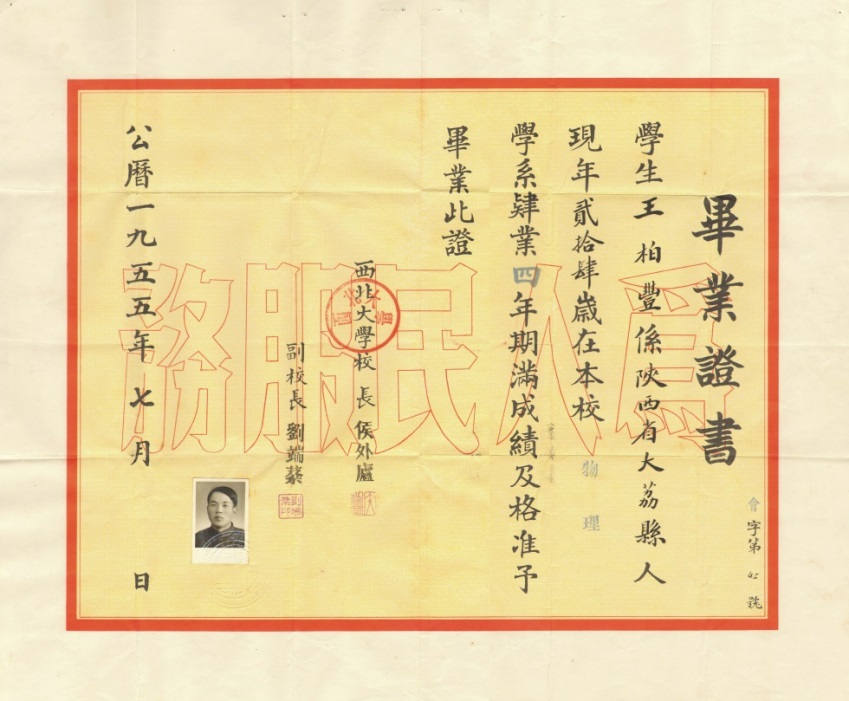 畢業證書
學生王柏豐係陝西省大荔縣人
現年貳拾肆歲在本校物理
學系肄業四年期滿成績及格准予
畢業此證
西北大學校長侯外廬
副校長劉端棻
公曆一九五五年七月 日
字第 號
為人民服務